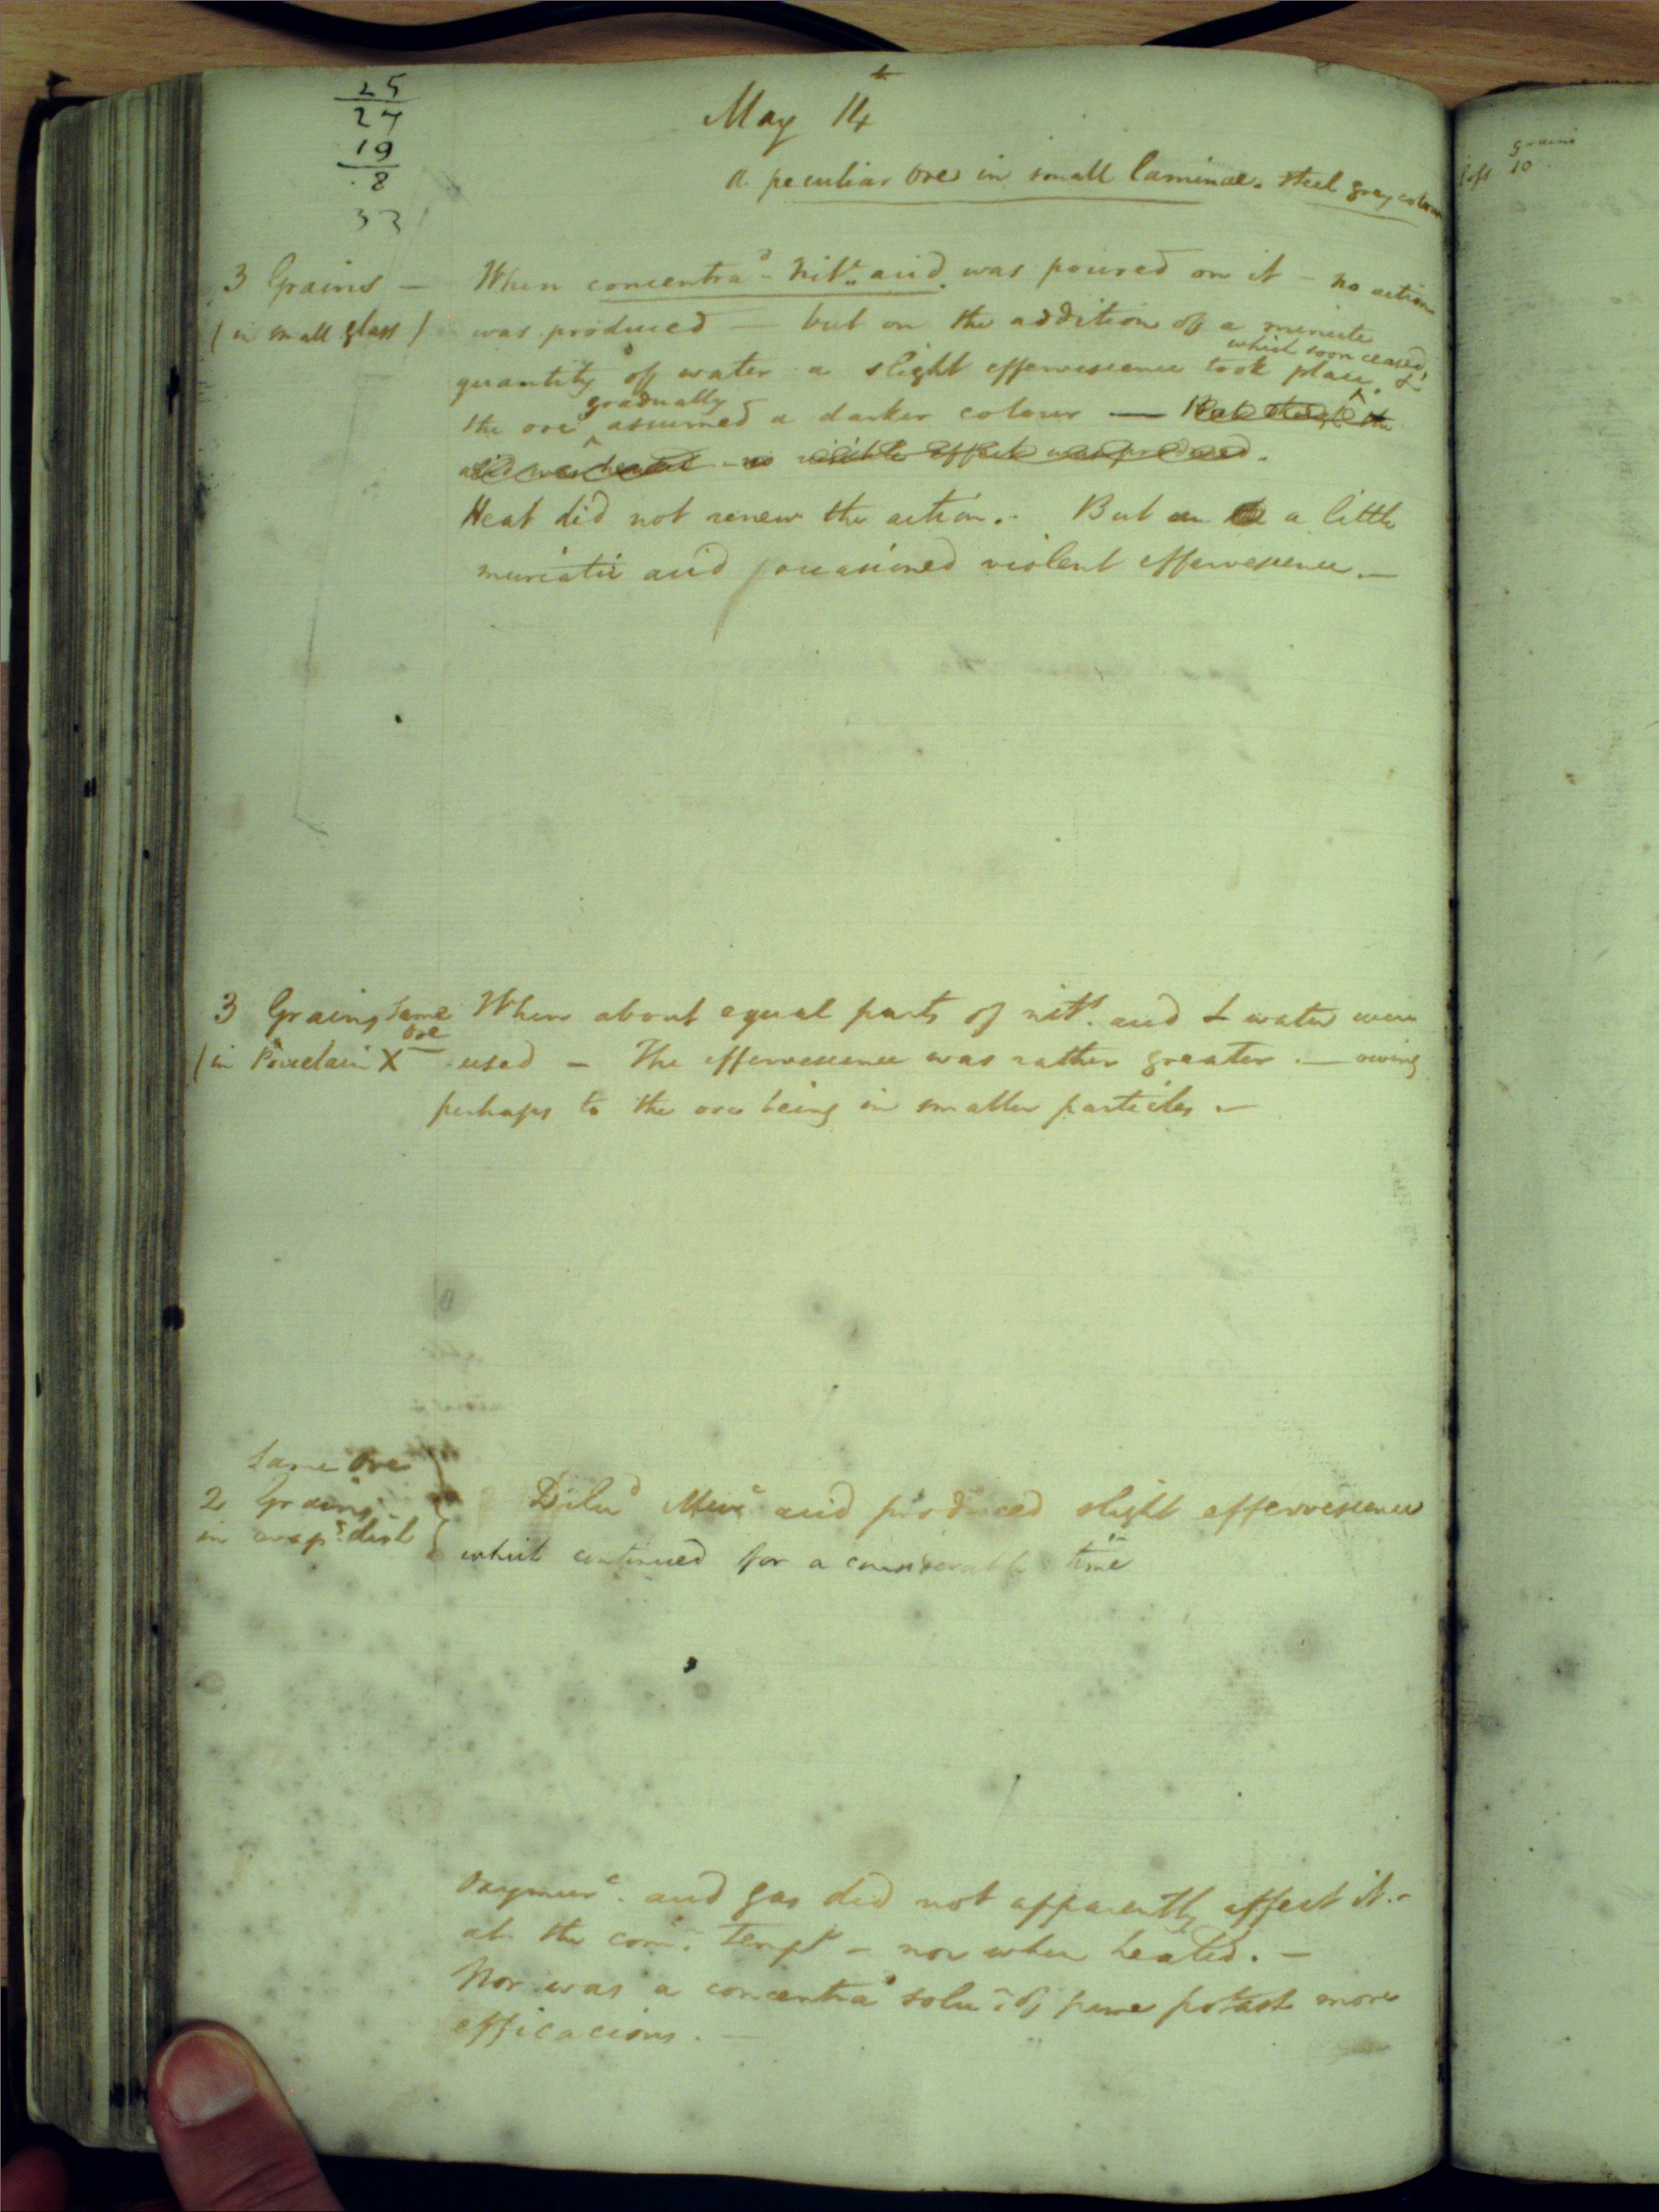 25
27
19
8
33
May 14th
A peculiar ore in small laminae. steel grey colour
3 Grains —
(in small glass)
When concentrad - Nitc acid was poured on it - no action
was produced — but on the addition of a minute
quantity of water a slight effervescence took place, which soon ceased, &
the ore gradually assumed a darker colour — But though the
acid was heated - no visible effect was produced.
Heat did not renew the action. - But a little
muriatic acid occasioned violent effervescence. —
3 Grains same ore
(in Porcelain X
When about equal parts of nitc. acid & water were
used - The effervescence was rather greater. — owing
perhaps to the ore being in smaller particles. —
Same ore
2 Grains
in evapg. dish
Dilud Murc acid produced slight effervescence
which continued for a considerable time
Oxymurc. acid gas did not apparently affect it. -
at the comn. tempr - nor when heated. —
Nor was a concentrad solun of pure potash more
efficacious. —
grains
10